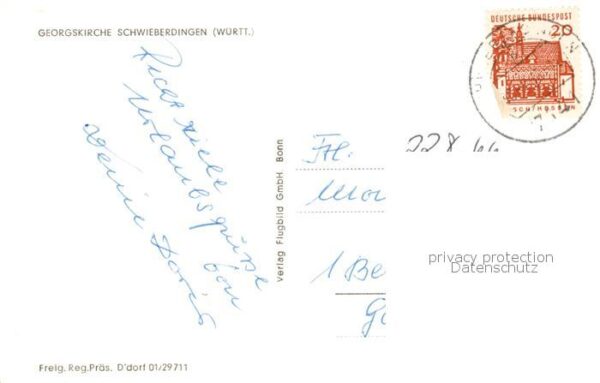 GEORGSKIRCHE SCHWIEBERDINGEN (WÜRTT.)
Recht viele
Urlaubsgrüße
von
Deine Doris
Verlag Flugbild GmbH Bonn
DEUTSCHE BUNDESPOST
20
Frl.
1 Be
privacy protection
Datenschutz
Freig. Reg.Präs. D'dorf 01/29711